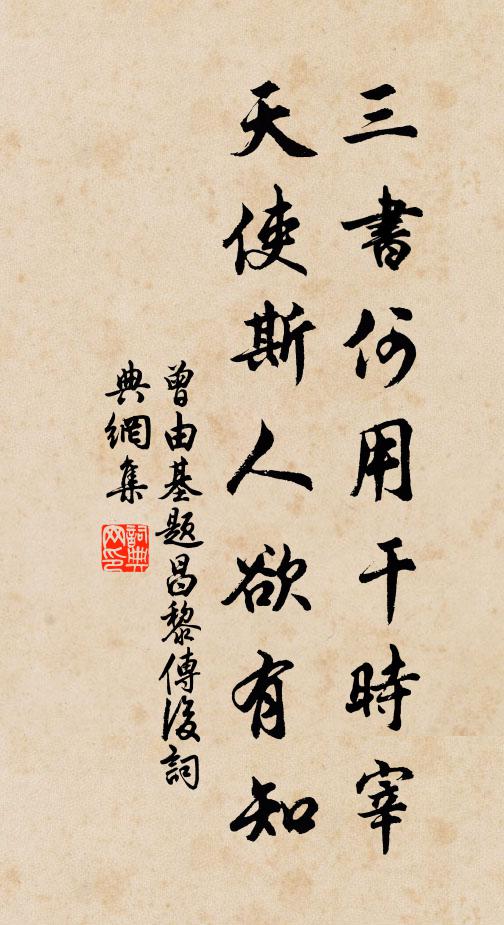 三書何用干時宰
天使斯人欲有知
曾由基題昌黎傳後詞
典網集
詞典網印